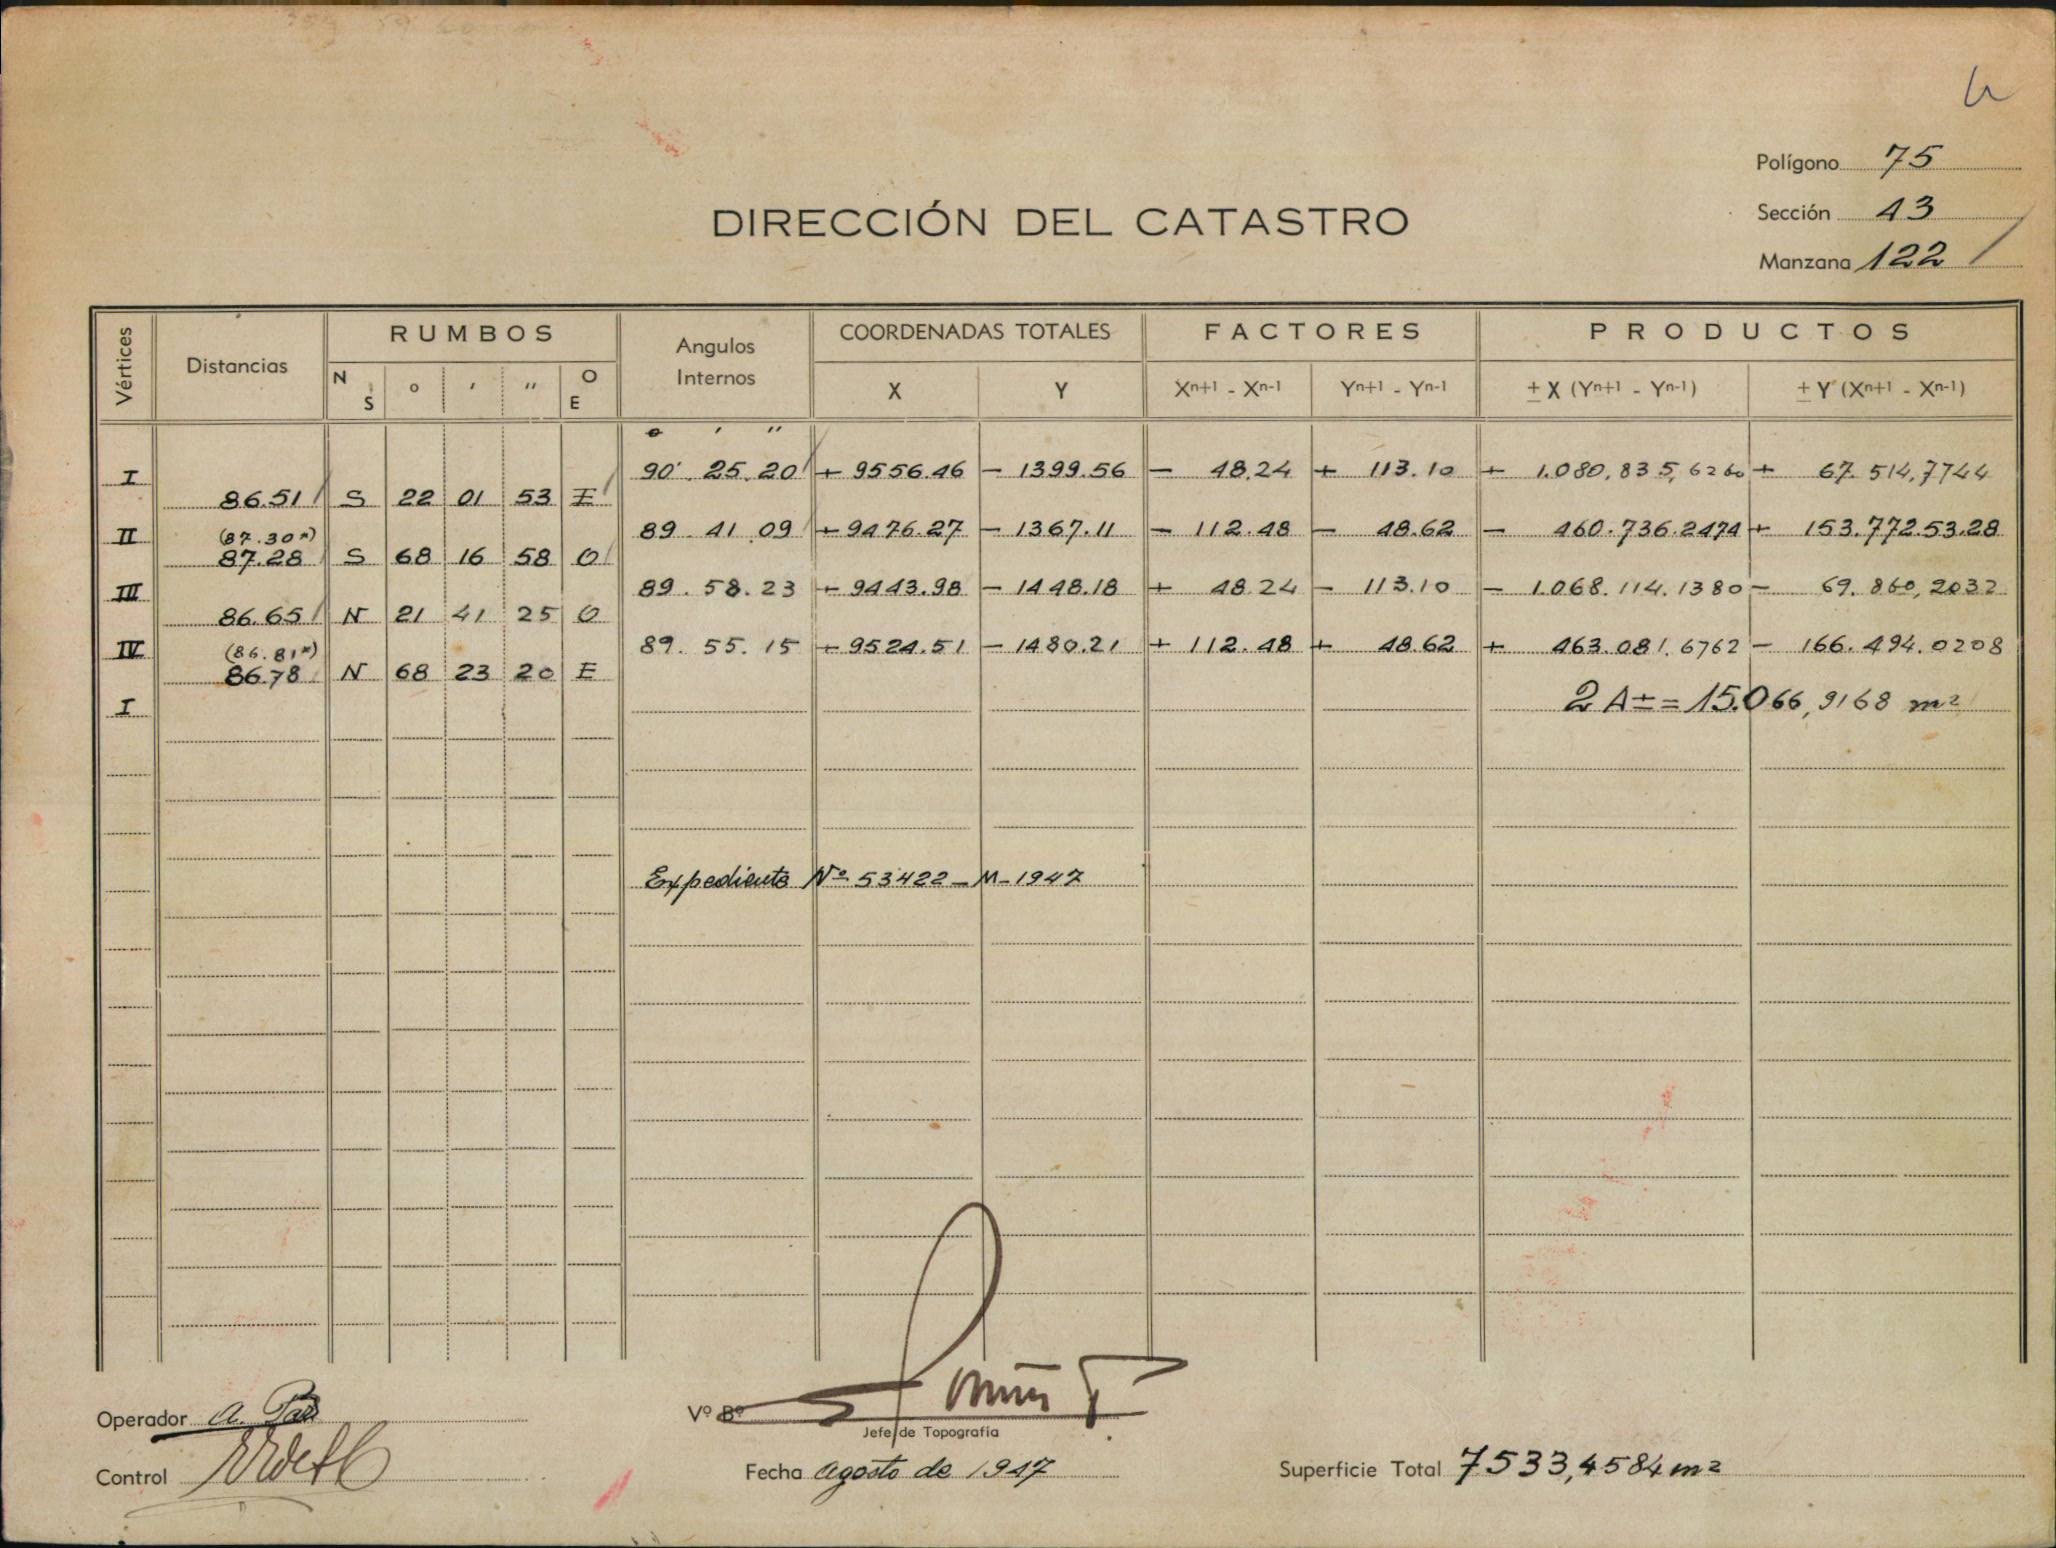 Polígono 75
DIRECCIÓN DEL CATASTRO
Sección 43
Manzana 122
Vértices Distancias RUMBOS Angulos Internos COORDENADAS TOTALES FACTORES PRODUCTOS
N S o ' '' O E X Y Xn+1 - Xn-1 Yn+1 - Yn-1 ± X (Yn+1 - Yn-1) ± Y (Xn+1 - Xn-1)
o ' ''
I 90 . 25 . 20 + 9556.46 - 1399.56 - 48.24 + 113.10 + 1.080.835,6260 + 67.514,7744
86.51 S 22 01 53 E
II 89 41 09 + 9476.27 - 1367.11 - 112.48 - 48.62 - 460.736.2474 + 153.772.53.28
(87.30m)
87.28 S 68 16 58 O
III 89 . 58 . 23 + 9443.98 - 1448.18 + 48.24 - 113.10 - 1.068.114.1380 - 69.860,2032
86.65 N 21 41 25 O
IV 89. 55. 15 + 9524.51 - 1480.21 + 112.48 + 48.62 + 463.081.6762 - 166.494.0208
(86.81m)
86.78 N 68 23 20 E
I 2 A ± = 15.066,9168 m2
Expediente Nº 53422 - M - 1947
Operador A.
Vº Bº
Jefe de Topografía
Control
Fecha agosto de 1947
Superficie Total 7533,4584 m2